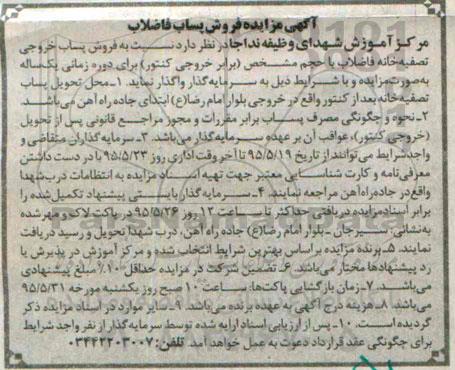 آگهی مزایده فروش پساب فاضلاب
مرکز آموزش شهدای وظیفه نداجا در نظر دارد نسبت به فروش پساب خروجی
تصفیه‌خانه فاضلاب با حجم مشخص (برابر خروجی کنتور) برای دوره زمانی یکساله
به‌صورت مزایده و با شرایط ذیل به سرمایه‌گذار واگذار نماید. ۱ـ محل تحویل پساب
تصفیه‌خانه بعد از کنتور واقع در خروجی بلوار امام رضا(ع) ابتدای جاده راه آهن می‌باشد.
۲ـ نحوه و چگونگی مصرف پساب برابر مقررات و مجوز مراجع قانونی پس از تحویل
(خروجی کنتور)، عواقب آن بر عهده سرمایه‌گذار می‌باشد. ۳ـ سرمایه‌گذاران متقاضی و
واجد شرایط می‌توانند از تاریخ ۹۵/۵/۱۹ تا آخر وقت اداری روز ۹۵/۵/۲۳ با در دست داشتن
معرفی‌نامه و کارت شناسایی معتبر جهت تهیه اسناد مزایده به انتظامات درب شهدا
واقع در جاده راه آهن مراجعه نمایند. ۴ـ سرمایه‌گذار بایستی پیشنهاد تکمیل شده را
برابر اسناد مزایده دریافتی حداکثر تا ساعت ۱۲ روز ۹۵/۵/۲۶ در پاکت لاک و مهر شده
به‌نشانی: سیرجان ـ بلوار امام رضا(ع) جاده راه آهن، درب شهدا تحویل و رسید دریافت
نمایند. ۵ـ برنده مزایده بر اساس بهترین شرایط انتخاب شده و مرکز آموزش در پذیرش یا
رد پیشنهادها مختار می‌باشد. ۶ـ تضمین شرکت در مزایده حداقل ۱۰٪ مبلغ پیشنهادی
می‌باشد. ۷ـ زمان بازگشایی پاکت‌ها: ساعت ۱۰ صبح روز یکشنبه مورخه ۹۵/۵/۳۱
می‌باشد. ۸ـ هزینه درج آگهی به عهده برنده می‌باشد. ۹ـ سایر موارد در اسناد مزایده ذکر
گردیده است. ۱۰ـ پس از ارزیابی اسناد ارایه شده توسط سرمایه‌گذار از نفر واجد شرایط
برای چگونگی عقد قرارداد دعوت به عمل خواهد آمد. تلفن: ۰۳۴۴۲۲۰۳۰۰۷